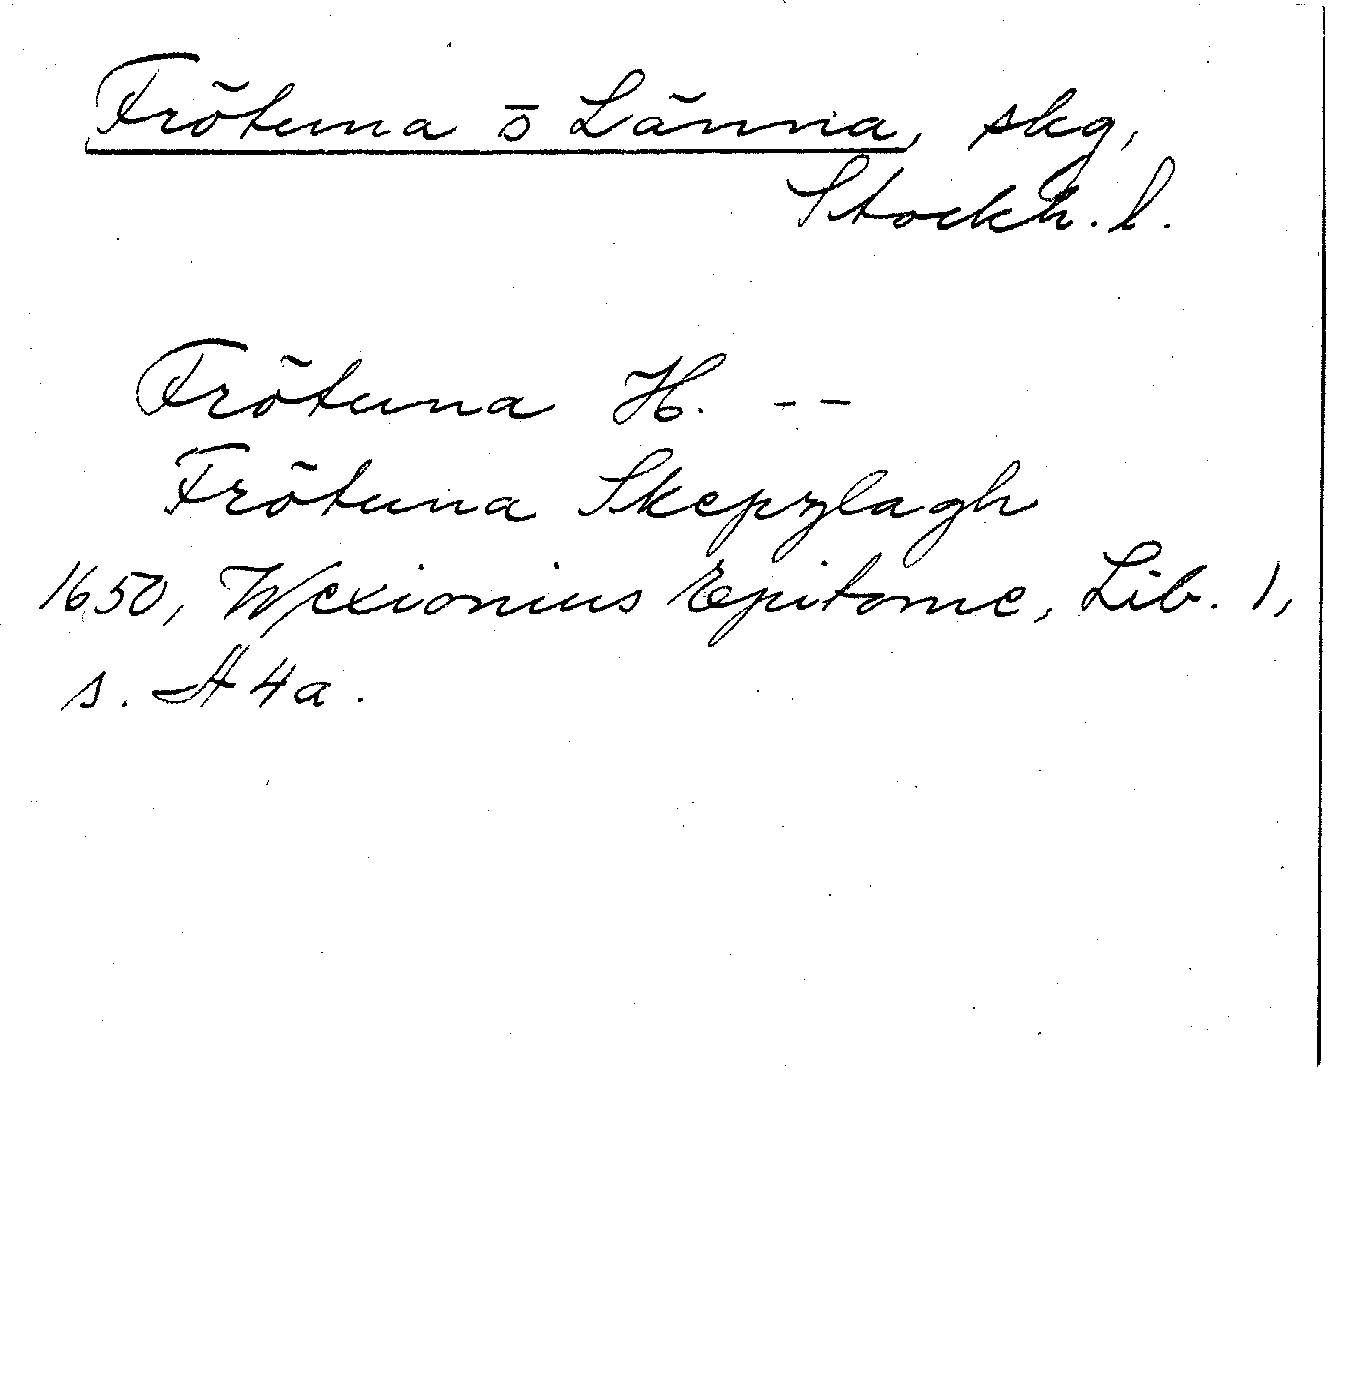 Frötuna o Länna, skg,
Stockh. l.
Frötuna H. --
Frötuna Skepzlagh
1650, Wexionius Epitome, Lib. 1,
s. A 4a.